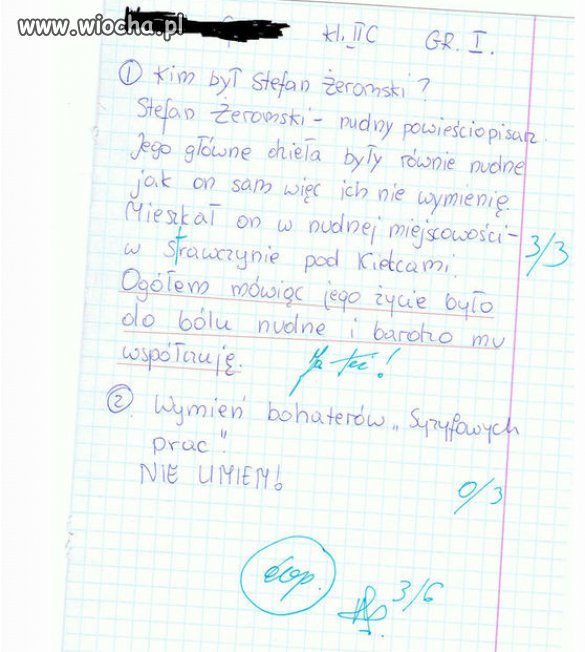 www.wiocha.pl
kl. II C GR. I.
① Kim był Stefan Żeromski?
Stefan Żeromski - nudny powieściopisarz.
Jego główne dzieła były równie nudne
jak on sam więc ich nie wymienię.
Mieszkał on w nudnej miejscowości -
w Strawczynie pod Kielcami. 3/3
Ogółem mówiąc jego życie było
do bólu nudne i bardzo mu
współczuję. Ja też!
② Wymień bohaterów „Syzyfowych
prac".
NIE UMIEM!
0/3
dop. 3/6